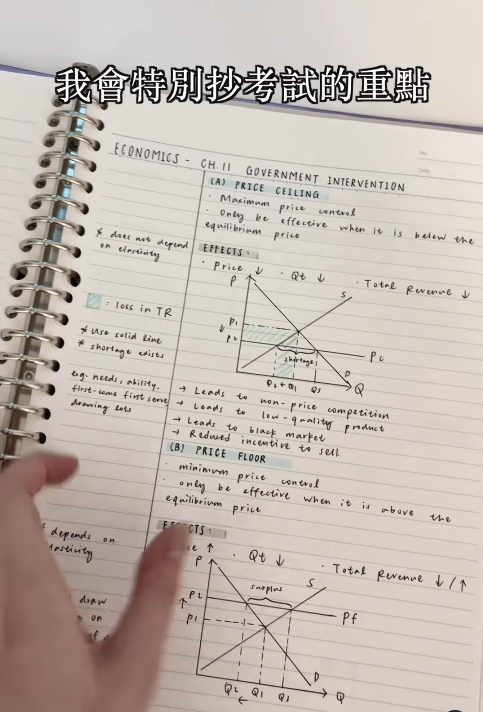 我會特別抄考試的重點
ECONOMICS - CH.11 GOVERNMENT INTERVENTION
(A) PRICE CEILING
· Maximum price control
· Only be effective when it is below the
equilibrium price
* does not depend
on elasticity
EFFECTS:
· Price ↓ · Qt ↓ · Total Revenue ↓
P
S
: loss in TR
P1
↓
P2
Pc
shortage
* Use solid line
* shortage exists
D
Q2 ← Q1 Q3 Q
e.g. needs, ability,
first-come first serve
drawing lots
→ Leads to non-price competition
→ Leads to low-quality product
→ Leads to black market
→ Reduced incentive to sell
(B) PRICE FLOOR
· minimum price control
· only be effective when it is above the
equilibrium price
depends on
elasticity
EFFECTS:
↑ · Qt ↓ · Total Revenue ↓/↑
P
S
surplus
P2
↑
P1
Pf
draw
on
D
Q2 Q1 Q3 Q
←